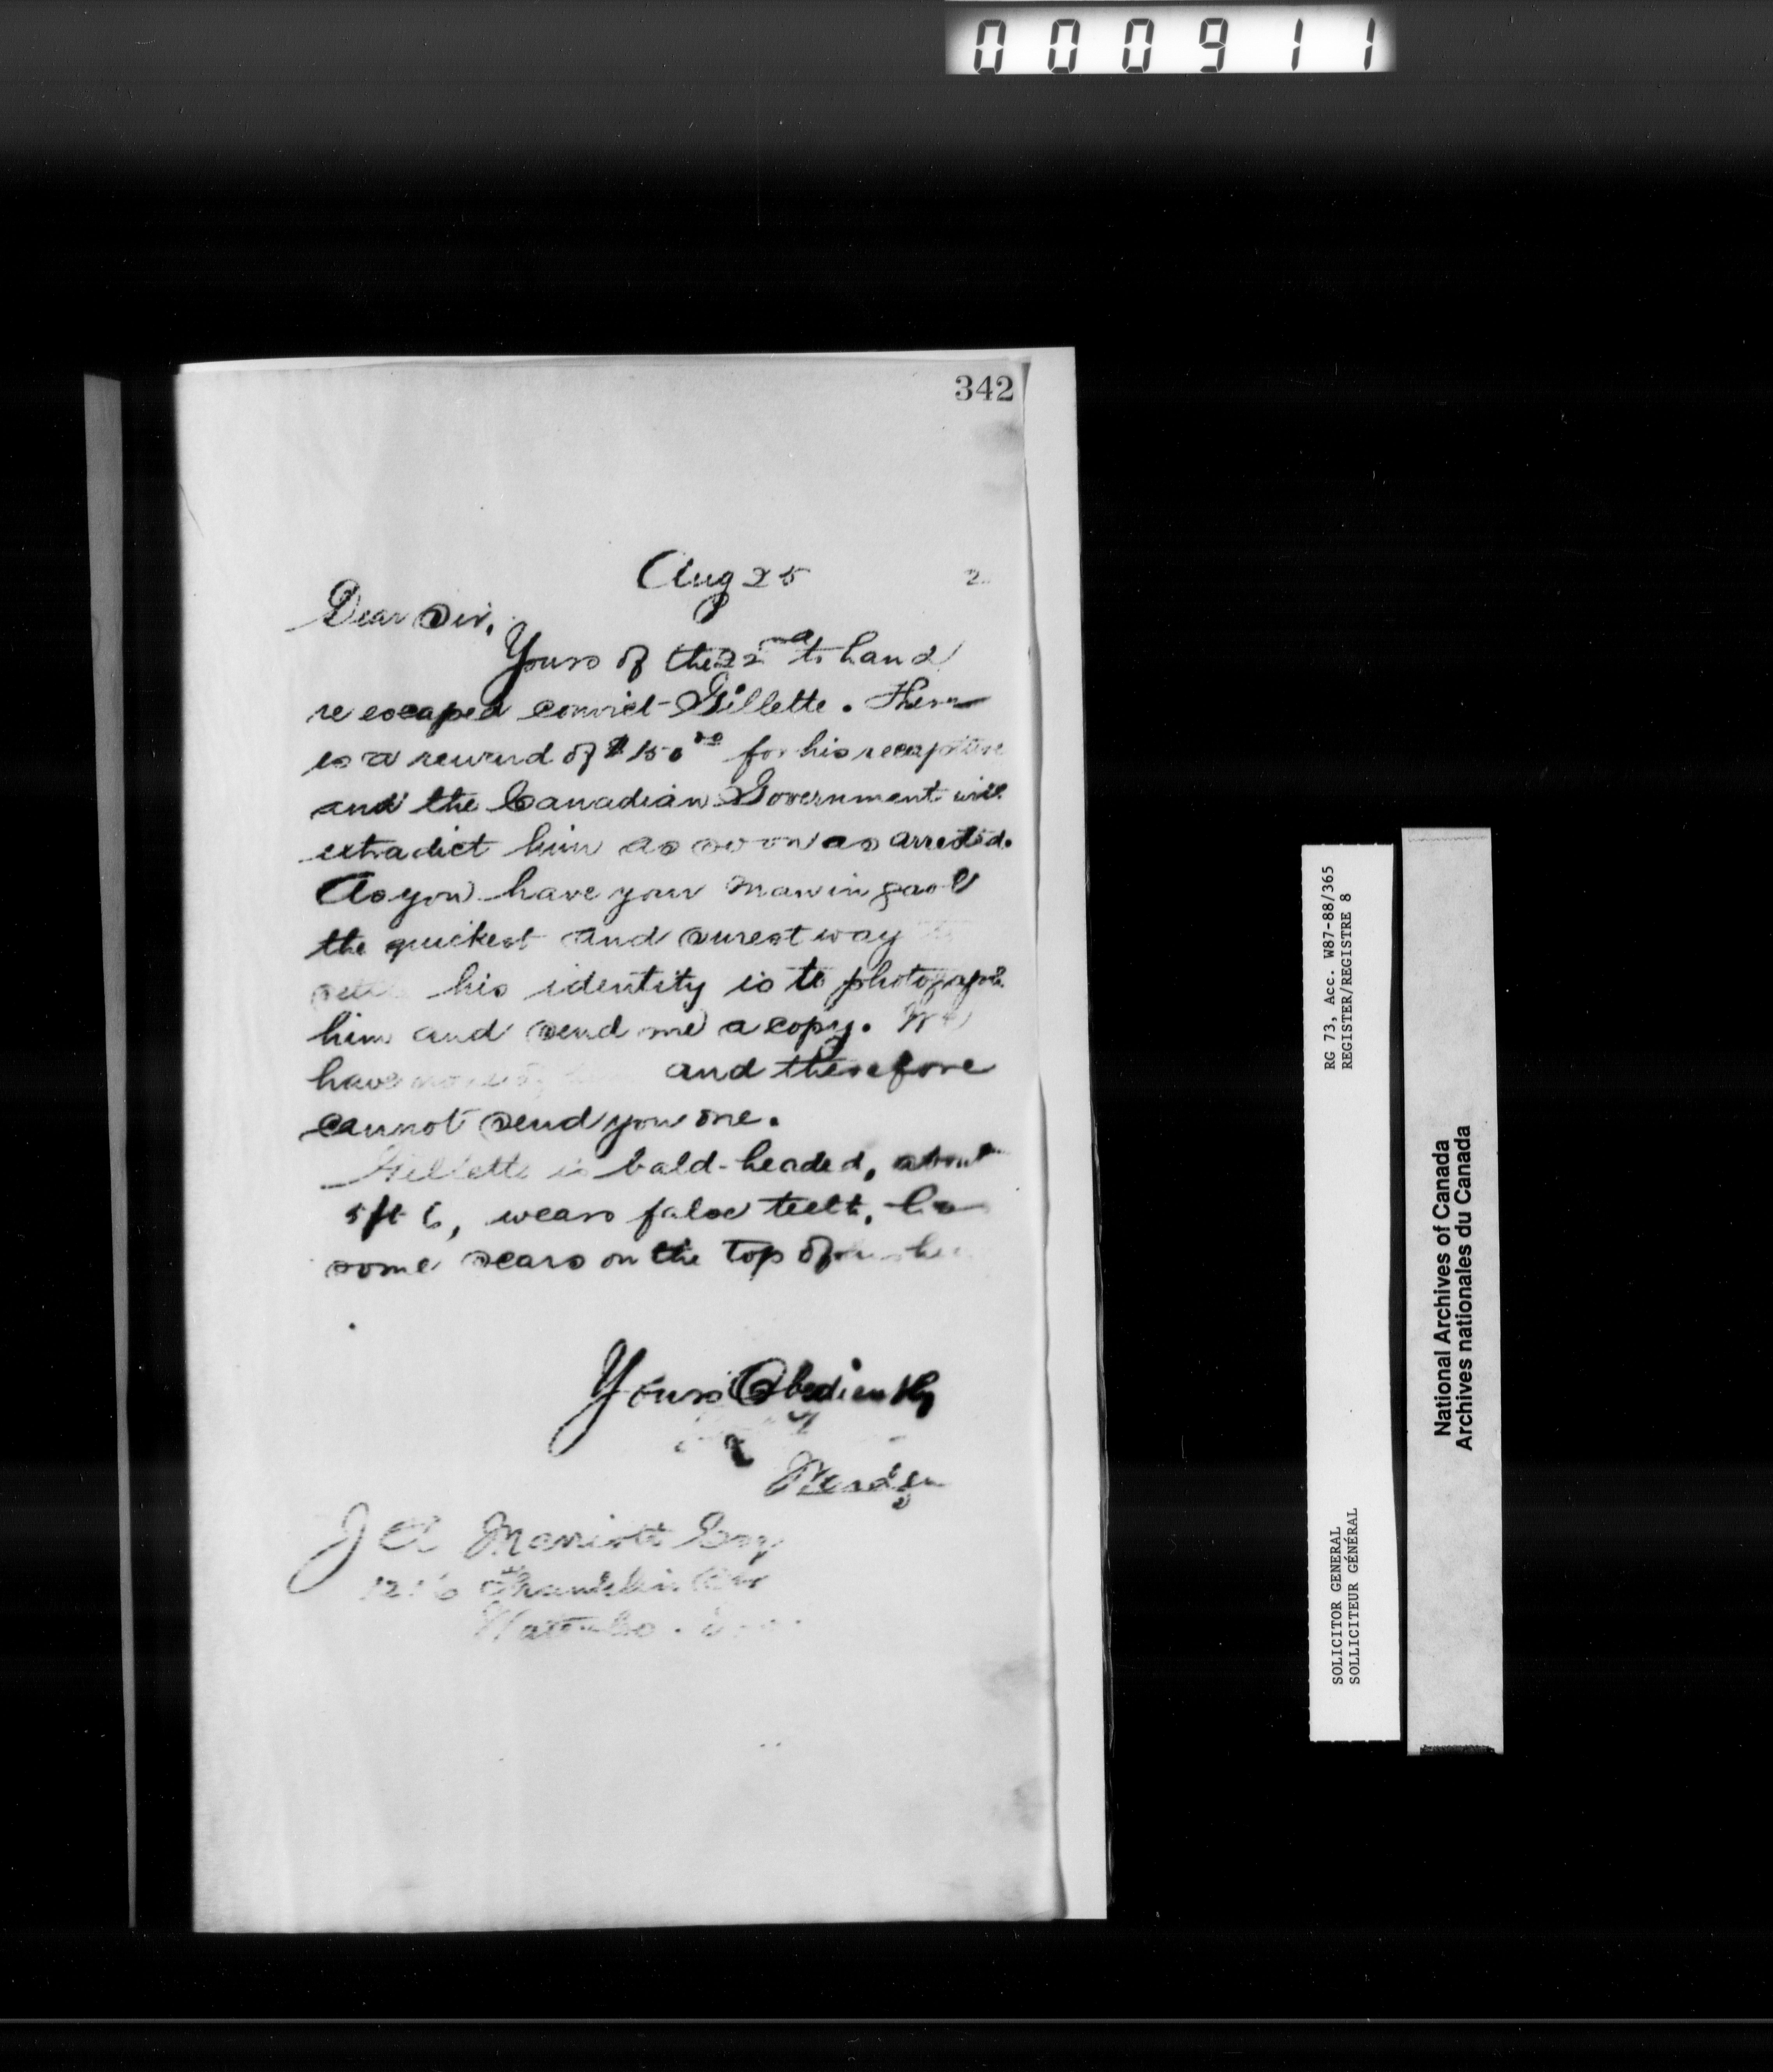 000911
342
Aug 25 2
Dear Sir,
Yours of the 22nd to hand
re escaped convict Gillette. There
is a reward of $150.00 for his recapture
and the Canadian Government will
extradict him as soon as arrested.
As you have your man in gaol
the quickest and surest way
his identity is to photograph
him and send me a copy. We
have none of him and therefore
cannot send you one.
Gillette is bald-headed, about
5 ft 6, wears false teeth, has
some scars on the top of his head
Yours Obediently
Warden
J A Marriott Esq
Franklin
Waterloo
RG 73, Acc. W87-88/365
REGISTER/REGISTRE 8
SOLICITOR GENERAL
SOLLICITEUR GÉNÉRAL
National Archives of Canada
Archives nationales du Canada